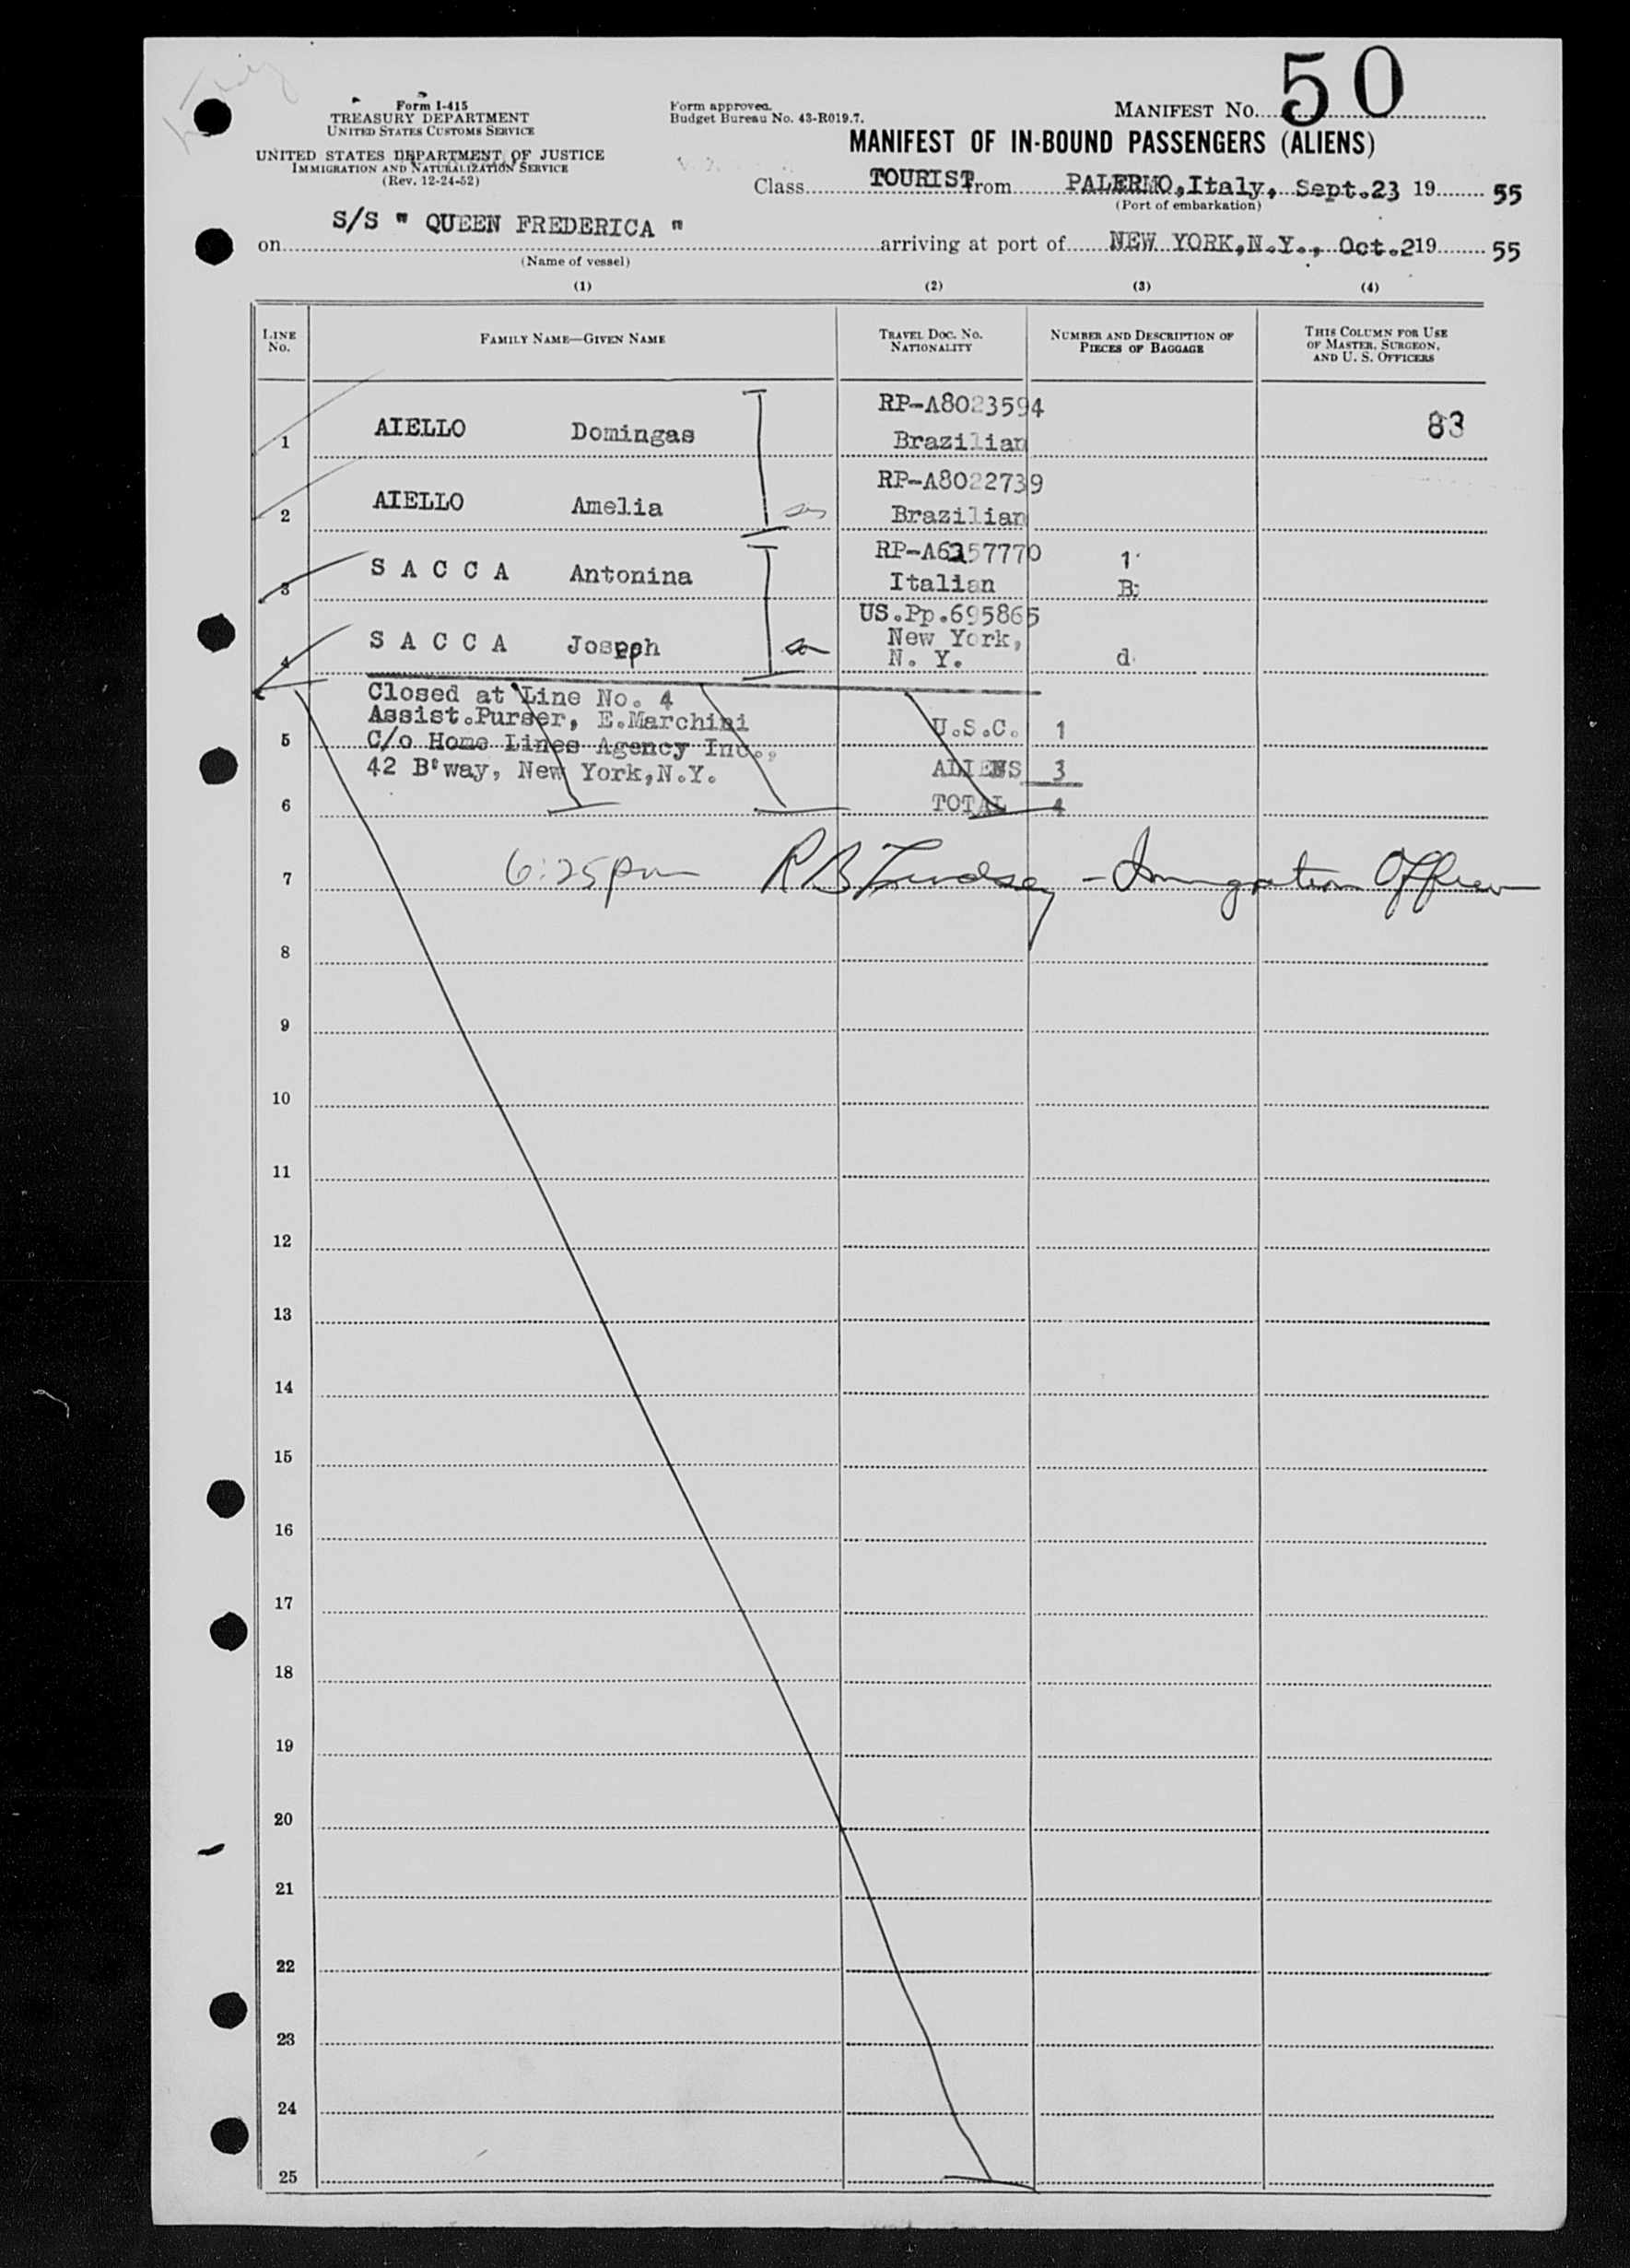 50
Form I-415
TREASURY DEPARTMENT
UNITED STATES CUSTOMS SERVICE
UNITED STATES DEPARTMENT OF JUSTICE
IMMIGRATION AND NATURALIZATION SERVICE
(Rev. 12-24-52)
Form approved.
Budget Bureau No. 43-R019.7.
MANIFEST No.
MANIFEST OF IN-BOUND PASSENGERS (ALIENS)
Class TOURIST from PALERMO, Italy, Sept. 23 19 55
(Port of embarkation)
on S/S " QUEEN FREDERICA " arriving at port of NEW YORK, N.Y., Oct. 2 19 55
(Name of vessel)
(1) (2) (3) (4)
LINE No. FAMILY NAME—GIVEN NAME TRAVEL DOC. NO. NATIONALITY NUMBER AND DESCRIPTION OF PIECES OF BAGGAGE THIS COLUMN FOR USE OF MASTER, SURGEON, AND U. S. OFFICERS
RP-A8023594
1 AIELLO Domingas Brazilian 83
RP-A8022739
2 AIELLO Amelia Brazilian
RP-A6257770 1
3 S A C C A Antonina Italian B
US.Pp.695865
New York,
4 S A C C A Joseph N. Y. d
Closed at Line No. 4
Assist.Purser, E.Marchini U.S.C. 1
5 C/o Home Lines Agency Inc.,
42 B'way, New York,N.Y. ALIENS 3
6 TOTAL 4
7 6:25pm R B Lindsey - Immigration Officer
8
9
10
11
12
13
14
15
16
17
18
19
20
21
22
23
24
25